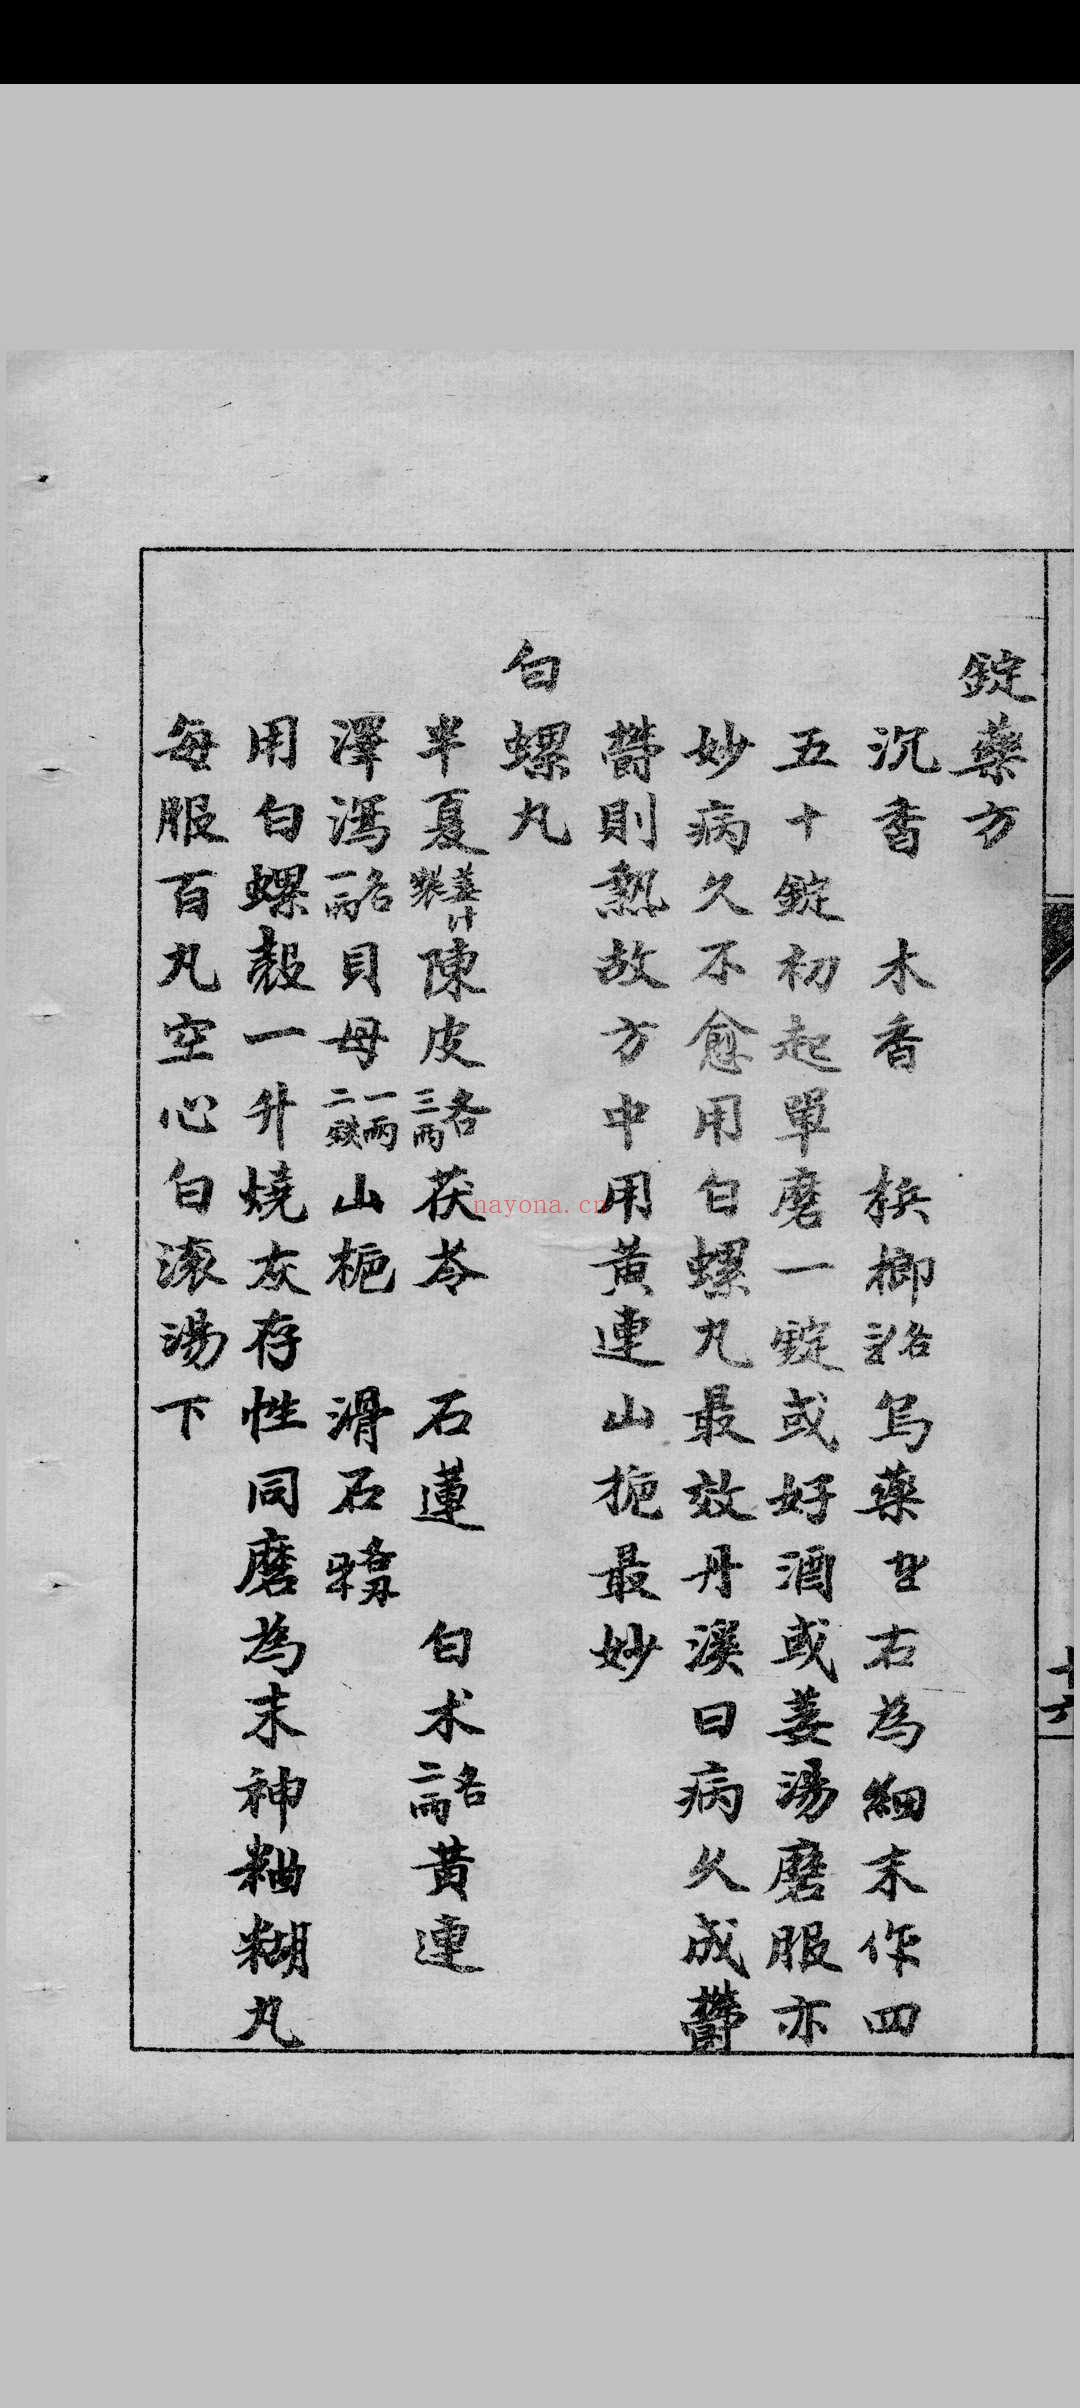 錠藥方
沉香 木香 梹榔各 烏藥 右為細末作四
五十錠初起單磨一錠或好酒或姜湯磨服亦
妙病久不愈用白螺丸最效丹溪曰病久成鬱
鬱則熱故方中用黃連山梔最妙
白螺丸
半夏姜汁製陳皮各三兩茯苓 石蓮 白术各二兩黃連
澤瀉各一兩貝母一兩二錢山梔 滑石各
用白螺殼一升燒灰存性同磨為末神麯糊丸
每服百丸空心白滚湯下
十六
nayona.cn